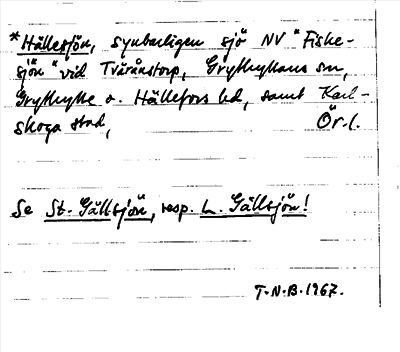 *Hällesjön, synbarligen sjö NV "Fiske-
sjön" vid Tväråns torp, Grythyttans sn,
Grythytte o. Hällefors bd, samt Karl-
skoga stad, Ör. l.
Se St. Gällsjön, resp. L. Gällsjön!
T.N.B. 1967.